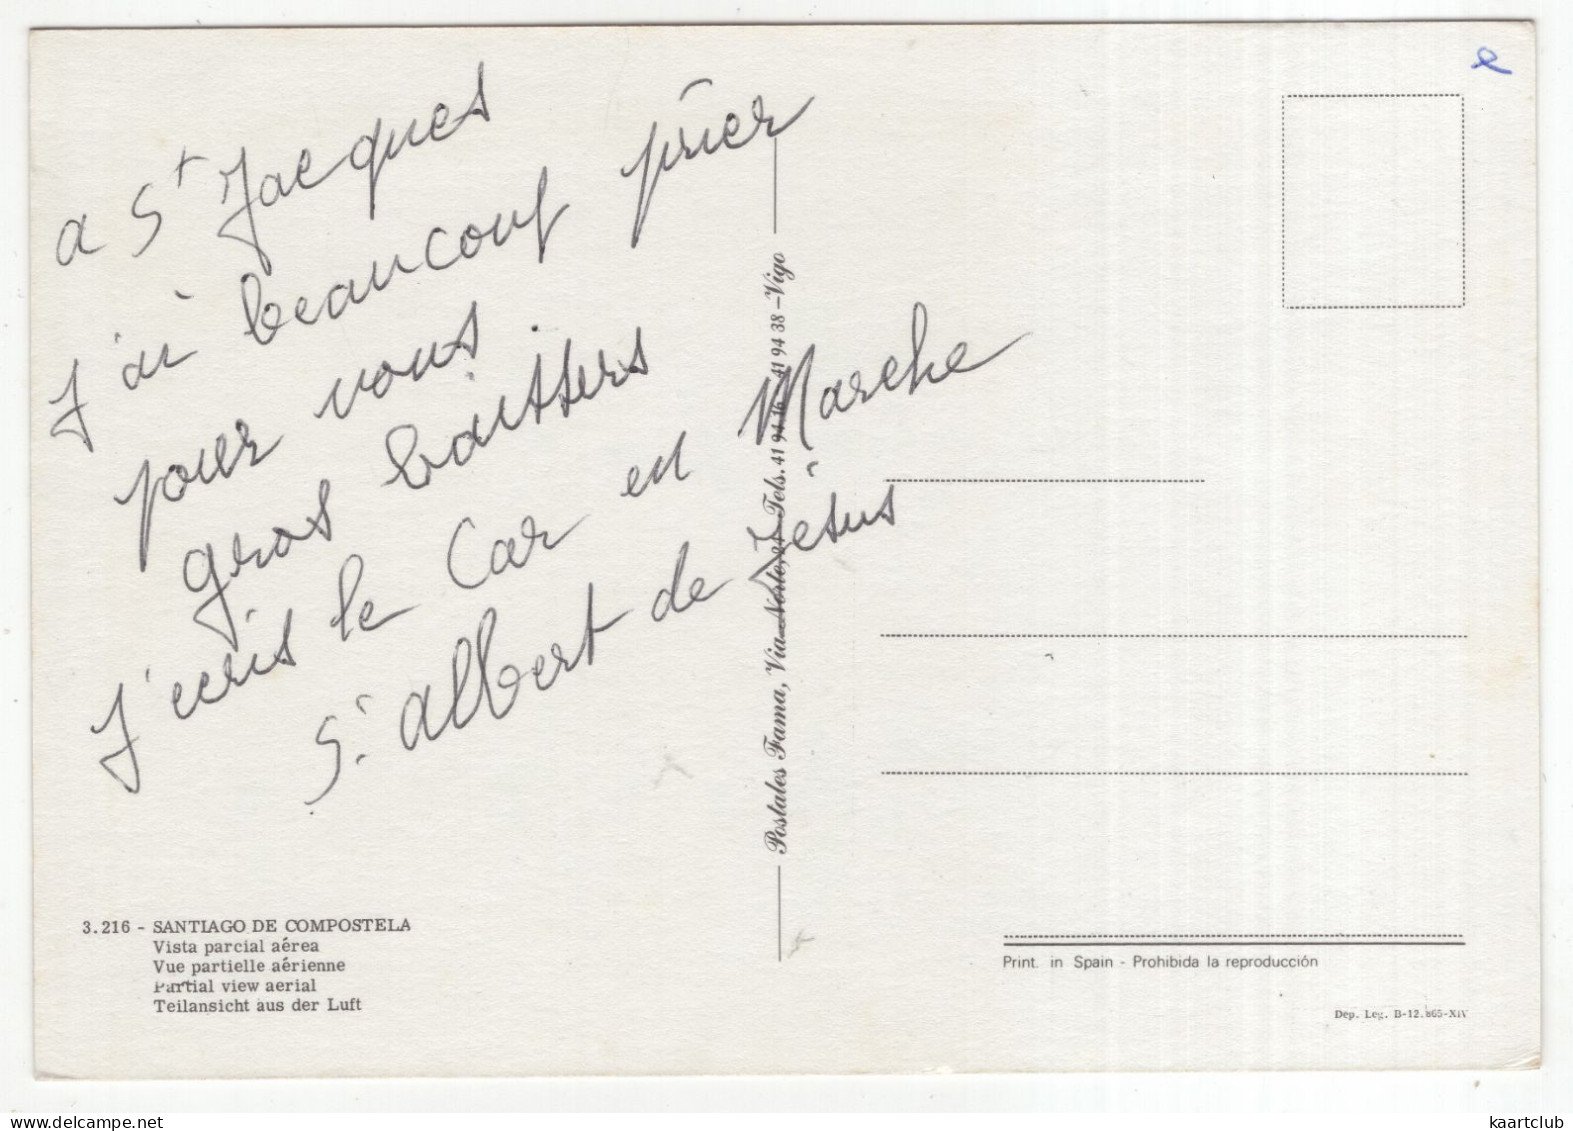 a St Jacques
J'ai beaucoup prier
pour vous.
gros baissers
J'ecris le Car en Marche
Sr Albert de Jésus
3.216 - SANTIAGO DE COMPOSTELA
Vista parcial aérea
Vue partielle aérienne
Partial view aerial
Teilansicht aus der Luft
Postales Fama, Via Norte, 24 - Tels. 41 94 16 - 41 94 38 - Vigo
e
Print. in Spain - Prohibida la reproducción
Dep. Leg. B-12.865-XIV
www.delcampe.net
kaartclub